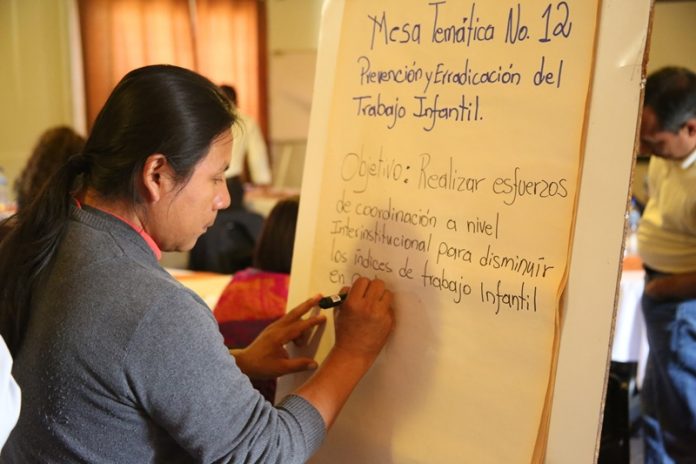 Mesa Temática No. 12
Prevención y Erradicación del
Trabajo Infantil.
Objetivo: Realizar esfuerzos
de coordinación a nivel
Interinstitucional para disminuir
los índices de trabajo Infantil
en